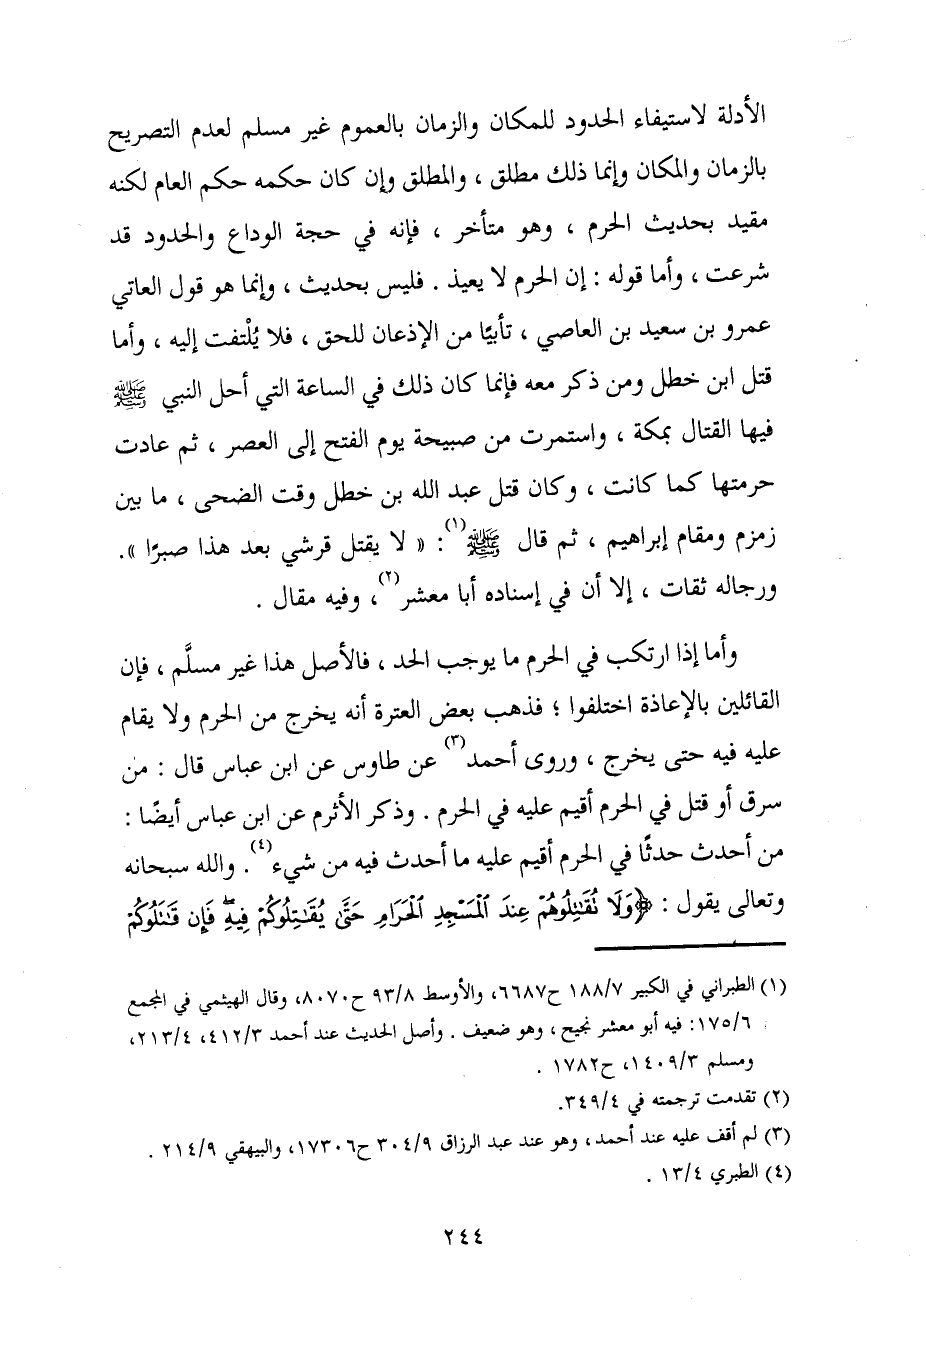 الأدلة لاستيفاء الحدود للمكان والزمان بالعموم غير مسلم لعدم التصريح
بالزمان والمكان وإنما ذلك مطلق ، والمطلق وإن كان حكمه حكم العام لكنه
مقيد بحديث الحرم ، وهو متأخر ، فإنه في حجة الوداع والحدود قد
شرعت ، وأما قوله : إن الحرم لا يعيذ . فليس بحديث ، وإنما هو قول العاتي
عمرو بن سعيد بن العاصي ، تأبيًا من الإذعان للحق ، فلا يُلْتفت إليه ، وأما
قتل ابن خطل ومن ذكر معه فإنما كان ذلك في الساعة التي أحل النبي ﷺ
فيها القتال بمكة ، واستمرت من صبيحة يوم الفتح إلى العصر ، ثم عادت
حرمتها كما كانت ، وكان قتل عبد الله بن خطل وقت الضحى ، ما بين
زمزم ومقام إبراهيم ، ثم قال ﷺ(١): « لا يقتل قرشي بعد هذا صبرًا ».
ورجاله ثقات ، إلا أن في إسناده أبا معشر(٢)، وفيه مقال .
وأما إذا ارتكب في الحرم ما يوجب الحد ، فالأصل هذا غير مسلَّم ، فإن
القائلين بالإعاذة اختلفوا ؛ فذهب بعض العترة أنه يخرج من الحرم ولا يقام
عليه فيه حتى يخرج ، وروى أحمد(٣) عن طاوس عن ابن عباس قال : من
سرق أو قتل في الحرم أقيم عليه في الحرم . وذكر الأثرم عن ابن عباس أيضًا :
من أحدث حدثًا في الحرم أقيم عليه ما أحدث فيه من شيء(٤). والله سبحانه
وتعالى يقول : ﴿وَلَا تُقَٰتِلُوهُمْ عِندَ ٱلْمَسْجِدِ ٱلْحَرَامِ حَتَّىٰ يُقَٰتِلُوكُمْ فِيهِۖ فَإِن قَٰتَلُوكُمْ
(١) الطبراني في الكبير ١٨٨/٧ ح٦٦٨٧، والأوسط ٩٣/٨ ح٨٠٧٠، وقال الهيثمي في المجمع
١٧٥/٦: فيه أبو معشر نجيح ، وهو ضعيف . وأصل الحديث عند أحمد ٤١٢/٣، ٢١٣/٤،
ومسلم ١٤٠٩/٣، ح١٧٨٢ .
(٢) تقدمت ترجمته في ٣٤٩/٤.
(٣) لم أقف عليه عند أحمد ، وهو عند عبد الرزاق ٣٠٤/٩ ح١٧٣٠٦، والبيهقي ٢١٤/٩ .
(٤) الطبري ١٣/٤ .
٢٤٤